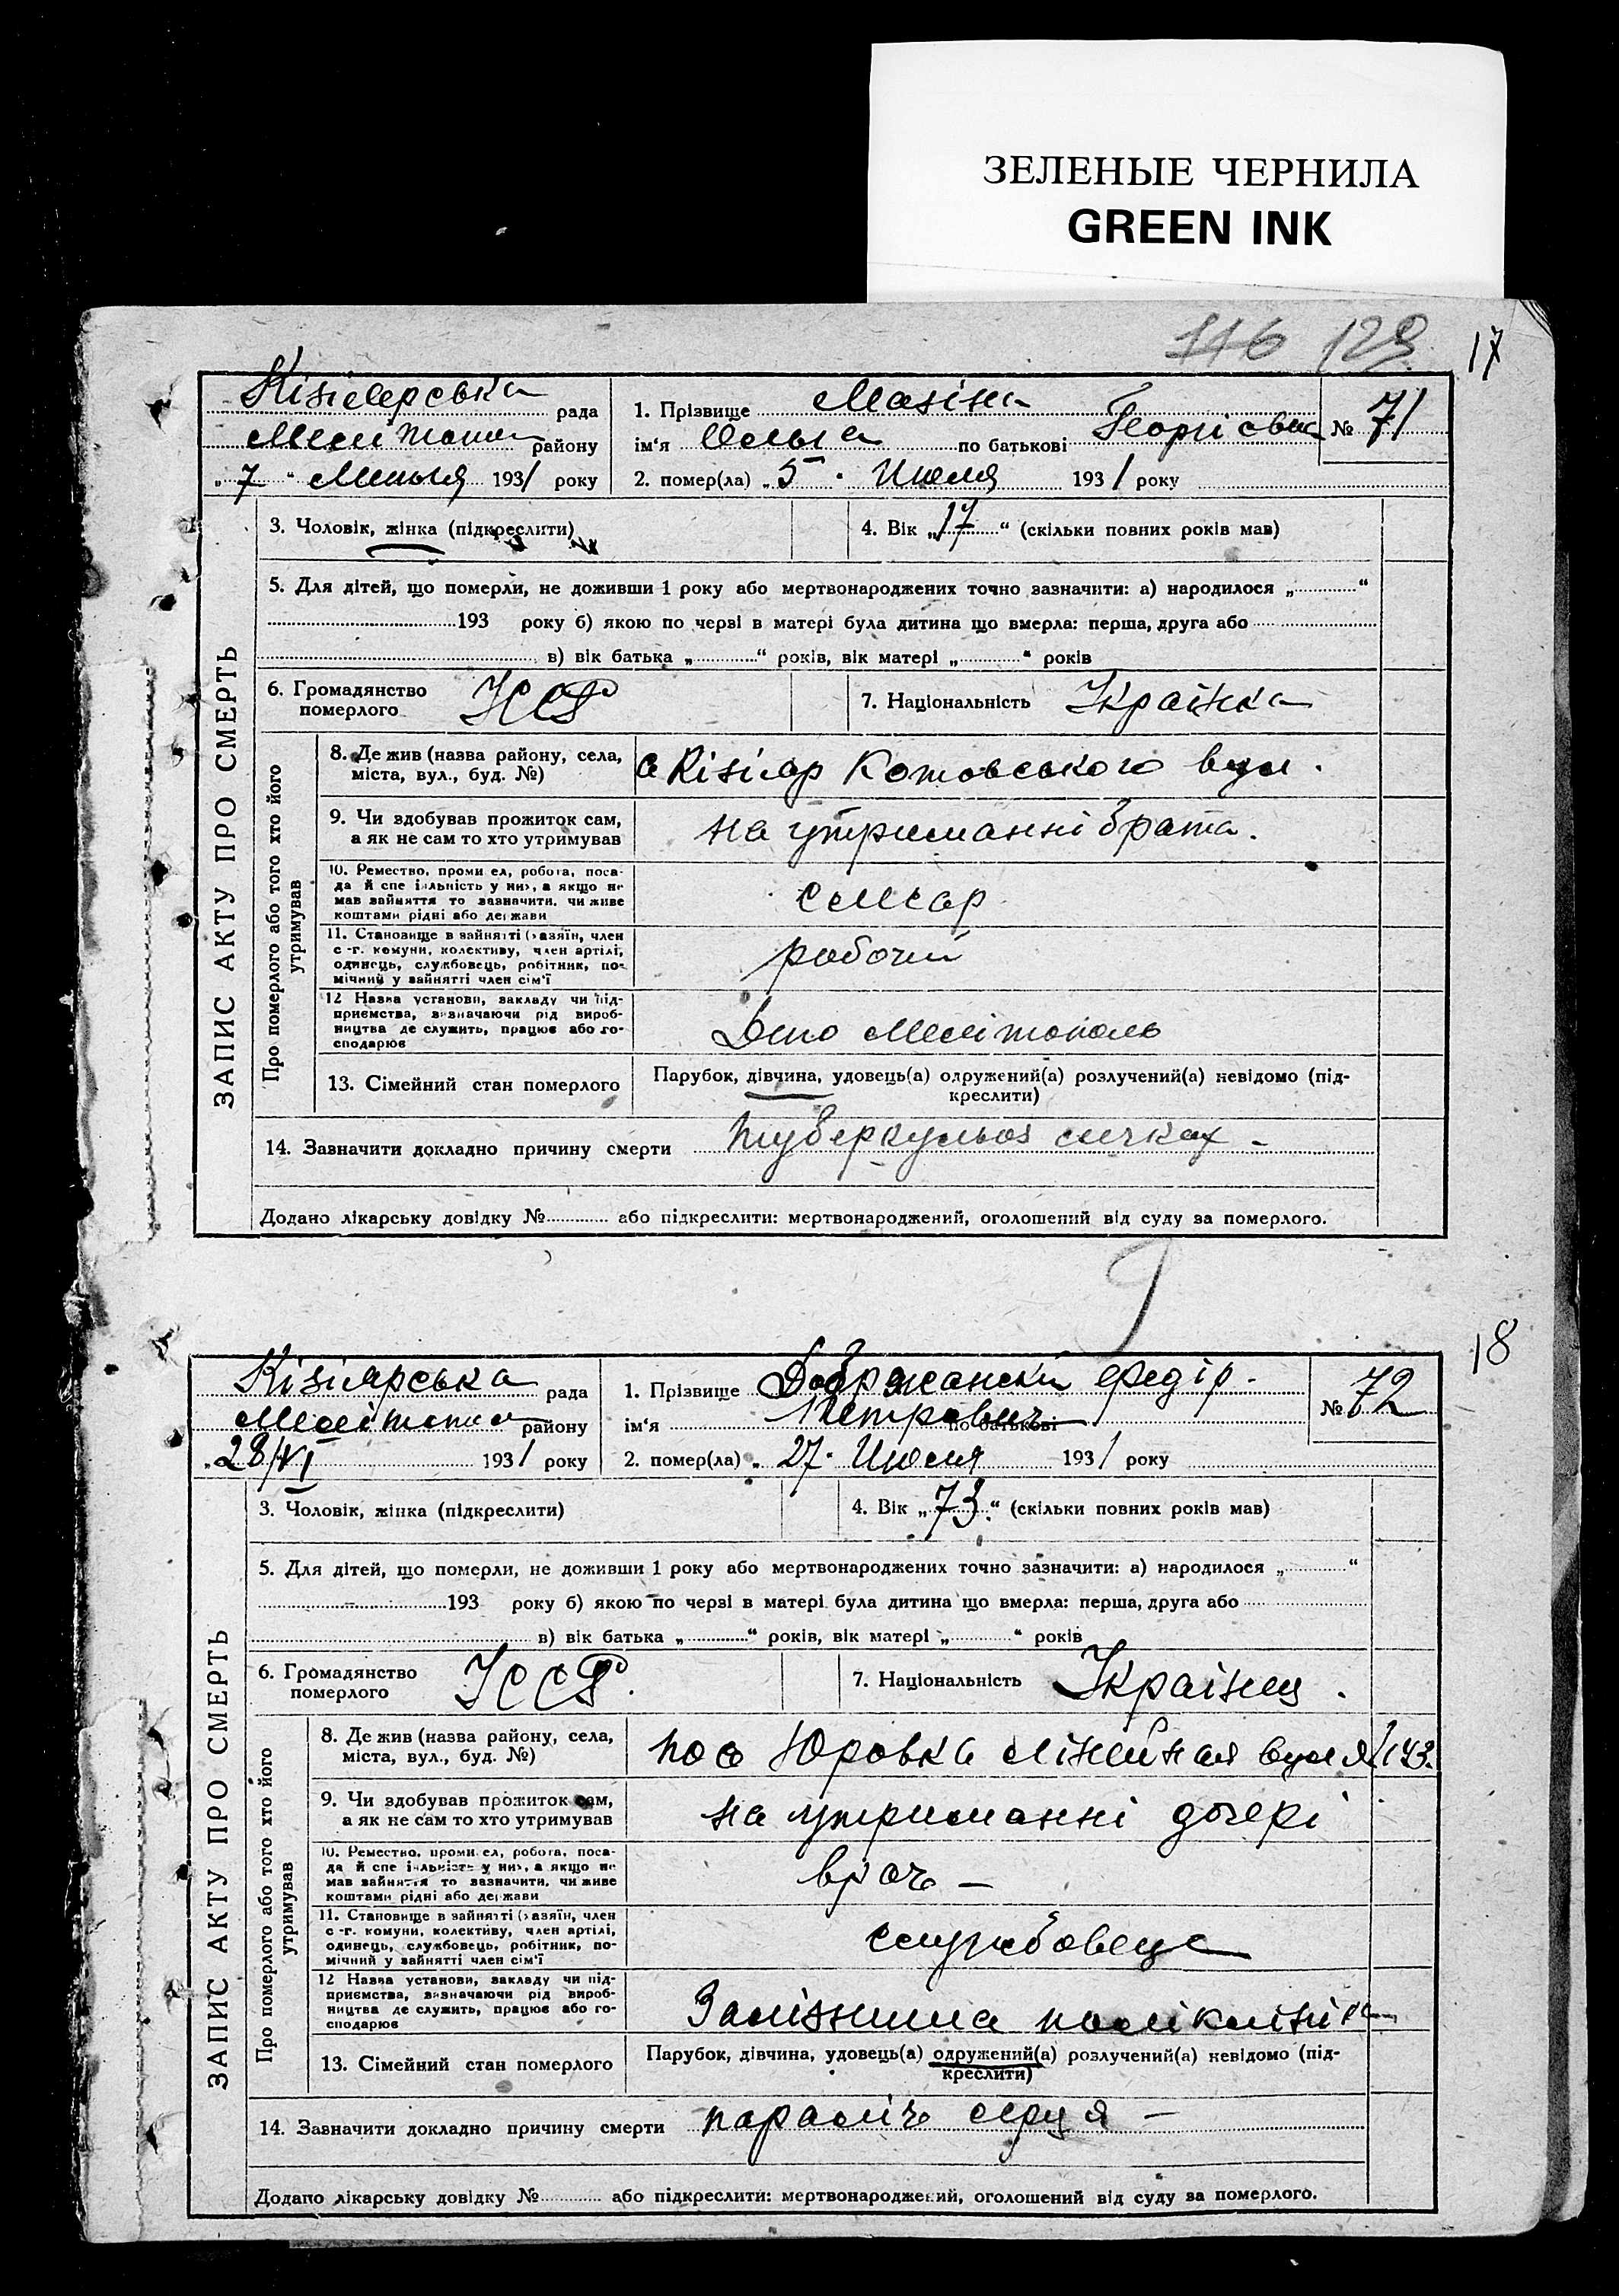 ЗЕЛЕНЫЕ ЧЕРНИЛА
GREEN INK
116 129 17
Кізіярська рада
1. Прізвище Мазіна
№ 71
Мелітопол району
ім'я Ольга по батькові Георгієвна
„7“ 1931 року
2. помер(ла) „5“ Июля 1931 року
ЗАПИС АКТУ ПРО СМЕРТЬ
3. Чоловік, жінка (підкреслити)
4. Вік „17“ (скільки повних років мав)
5. Для дітей, що померли, не доживши 1 року або мертвонароджених точно зазначити: а) народилося „ “
193 року б) якою по черві в матері була дитина що вмерла: перша, друга або
в) вік батька „ “ років, вік матері „ “ років
6. Громадянство померлого УССР
7. Національність Українка
Про померлого або того хто його утримував
8. Де жив (назва району, села,
міста, вул., буд. №)
с Кізіяр Котовського вул.
9. Чи здобував прожиток сам,
а як не сам то хто утримував
на утриманні брата.
10. Ремество, промисел, робота, поса-
да й спеціальність у них, а якщо не
мав зайняття то зазначити, чи живе
коштами рідні або держави
слюсар
11. Становище в зайнятті (хазяїн, член
с.-г. комуни, колективу, член артілі,
одинець, службовець, робітник, по-
мічний у зайнятті член сім'ї
робочий
12 Назва установи, закладу чи під-
приємства, визначаючи рід вироб-
ництва де служить, працює або го-
сподарює
Депо Мелітополь
13. Сімейний стан померлого
Парубок, дівчина, удовець(а) одружений(а) розлучений(а) невідомо (під-
креслити)
14. Зазначити докладно причину смерти туберкульоз легких -
Додано лікарську довідку № або підкреслити: мертвонароджений, оголошений від суду за померлого.
18
Кізіярська рада
1. Прізвище Добржанский Федір.
№ 72
Мелітопол району
ім'я Петрович по батькові
„28/VI 1931 року
2. помер(ла) „27“ Июля 1931 року
ЗАПИС АКТУ ПРО СМЕРТЬ
3. Чоловік, жінка (підкреслити)
4. Вік „73“ (скільки повних років мав)
5. Для дітей, що померли, не доживши 1 року або мертвонароджених точно зазначити: а) народилося „ “
193 року б) якою по черзі в матері була дитина що вмерла: перша, друга або
в) вік батька „ “ років, вік матері „ “ років
6. Громадянство померлого УССР.
7. Національність Українец.
Про померлого або того хто його утримував
8. Де жив (назва району, села,
міста, вул., буд. №)
пос Юровка лінейная вул № 143.
9. Чи здобував прожиток сам,
а як не сам то хто утримував
на утриманні дочері
10. Ремество, промисел, робота, поса-
да й спеціальність у них, а якщо не
мав зайняття то зазначити, чи живе
коштами рідні або держави
врач -
11. Становище в зайнятті (хазяїн, член
с.-г. комуни, колективу, член артілі,
одинець, службовець, робітник, по-
мічний у зайнятті член сім'ї
службовець
12 Назва установи, закладу чи під-
приємства, визначаючи рід вироб-
ництва де служить, працює або го-
сподарює
Залізнича поліклініка
13. Сімейний стан померлого
Парубок, дівчина, удовець(а) одружений(а) розлучений(а) невідомо (під-
креслити)
14. Зазначити докладно причину смерти параліч серця -
Додано лікарську довідку № або підкреслити: мертвонароджений, оголошений від суду за померлого.